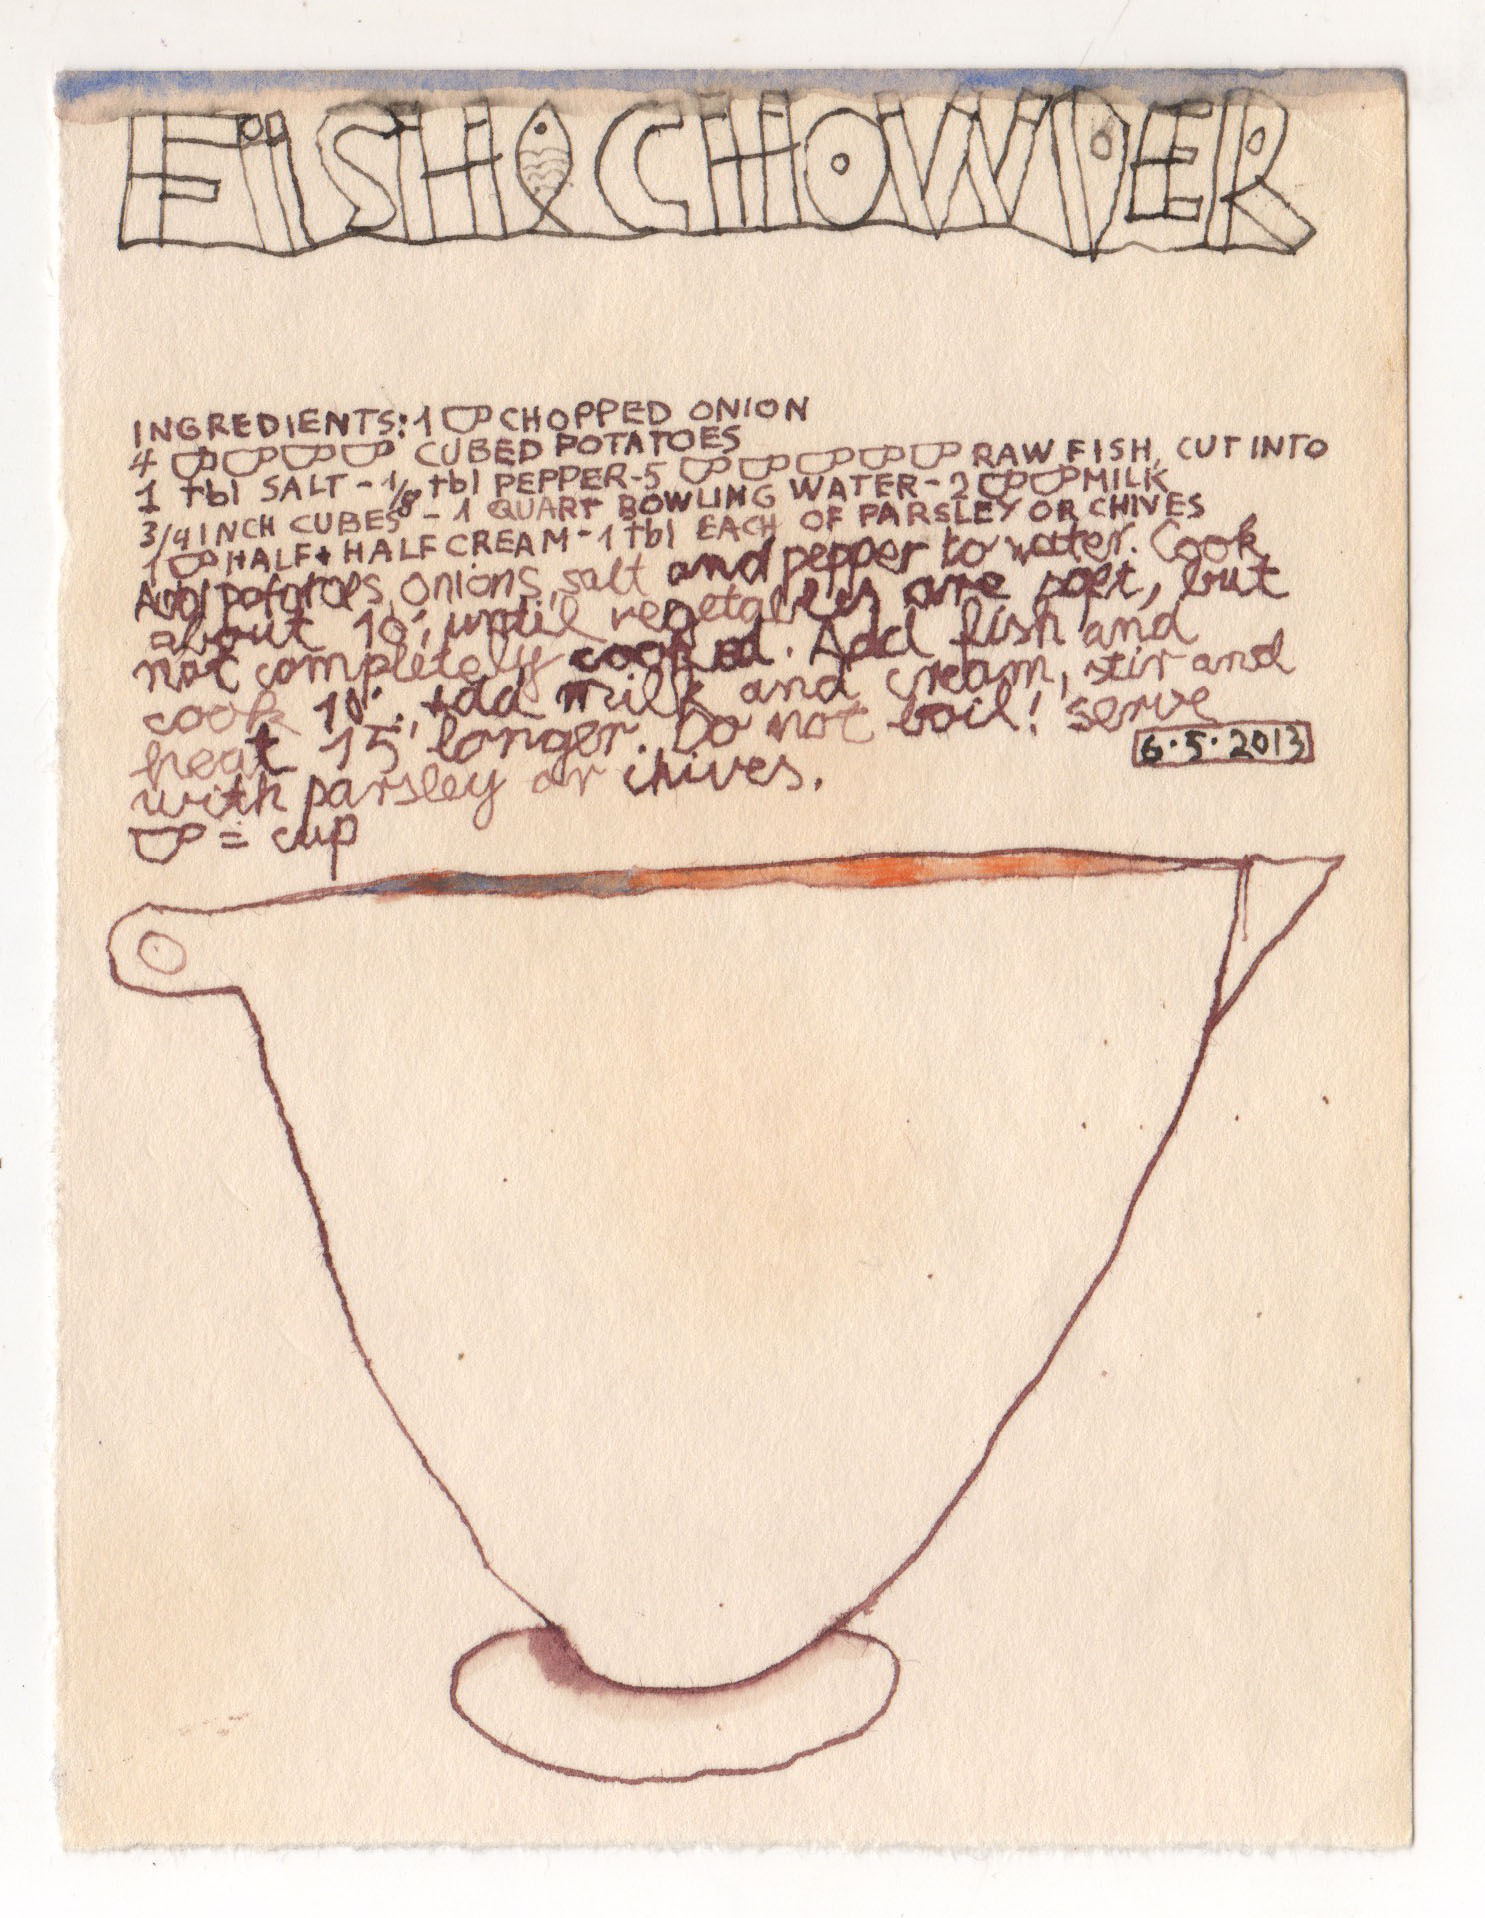 FISH CHOWDER
INGREDIENTS: 1 CHOPPED ONION
4 CUBED POTATOES
1 tbl SALT - 1/8 tbl PEPPER - 5 RAW FISH, CUT INTO
3/4 INCH CUBES - 1 QUART BOWLING WATER - 2 MILK
1 HALF + HALF CREAM - 1 tbl EACH OF PARSLEY OR CHIVES
Add potatoes, onions, salt and pepper to water. Cook
about 10', until vegetables are soft, but
not completely cooked. Add fish and
cook 10'. Add milk and cream, stir and
heat 15' longer. Do not boil! serve
with parsley or chives.
6·5·2013
= cup